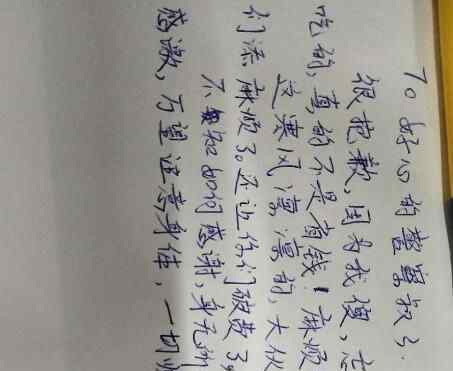 To 好心的警察叔叔.
很抱歉,因为我傻,忘
吃的,真的不是有钱!麻烦
这寒风凛凛的,大伙
们添麻烦了。还让你们破费了
不知如何感谢,身无所
感激,万望注意身体,一切